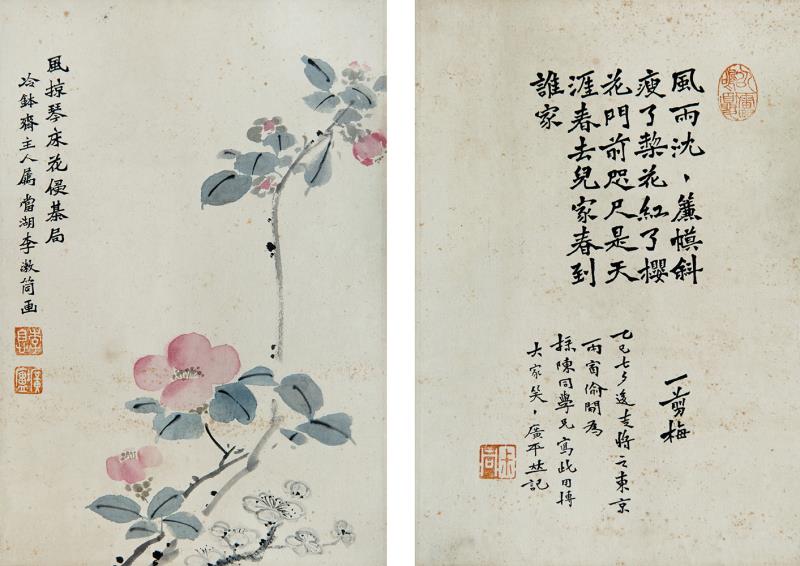 風掠琴床花侵棊局
冷鉢齋主人属 當湖李漱筒画
風雨沈、簾幙斜
瘦了棃花紅了櫻
花門前咫尺是天
涯春去兒家春到
誰家
一剪梅
乙巳七夕後 將之東京
雨窗偷閒為
陳同學兄寫此用博
大家笑、廣平 記